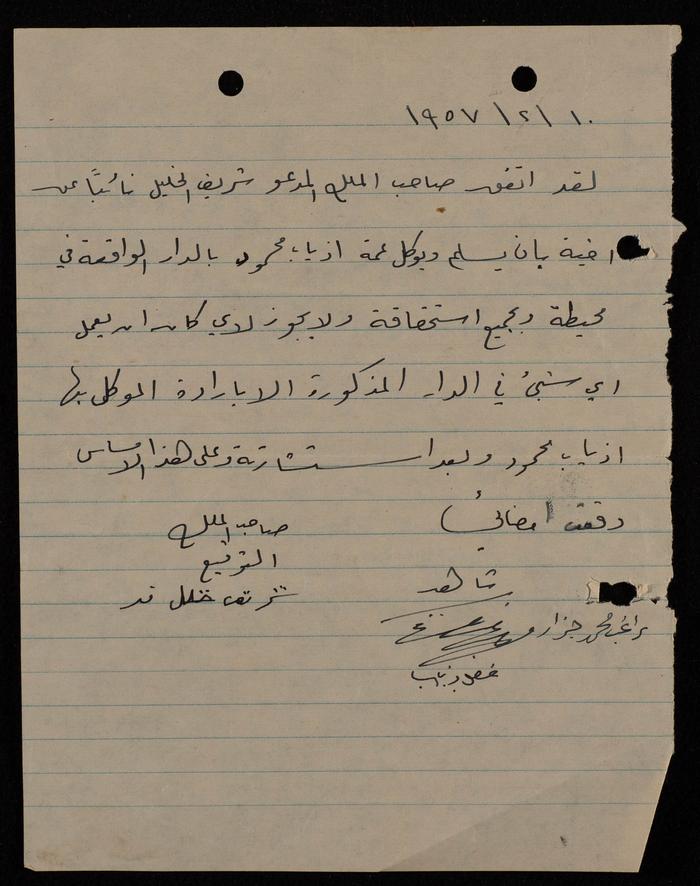 ١٠/٢/١٩٥٧
لقد اتفق صاحب الملك المدعو شريف الخليل نائباً عن
اخية بان يسلم ويوكل عمة اذياب محمود بالدار الواقعة في
محيطة وبجميع استحقاقة ولا يجوز لاي كان ان يعمل
اي شيئ في الدار المذكورة الا بارادة الموكل بها
اذياب محمود وبعد استشارتة وعلى هذا الاساس
وقعت امضائي
صاحب الملك
التوقيع
شريف خليل
شاهد
محمد جرار